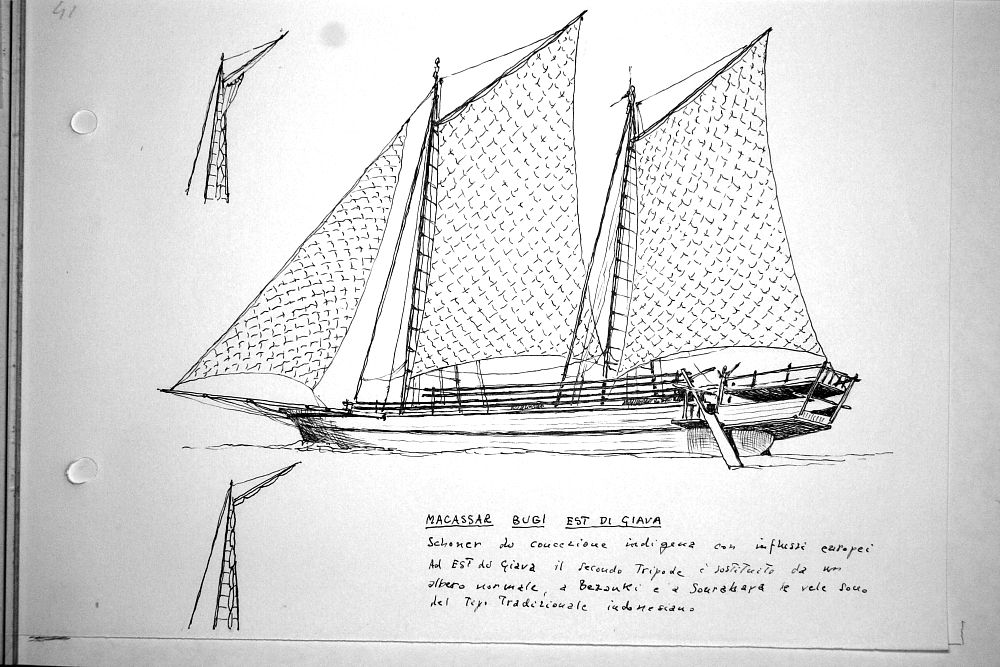 41
MACASSAR BUGI EST DI GIAVA
Schoner di concezione indigena con influssi europei
Ad EST di Giava il secondo Tripode è sostituito da un
albero normale, a Bezouki e a Sourabaya le vele sono
del Tipo Tradizionale indonesiano